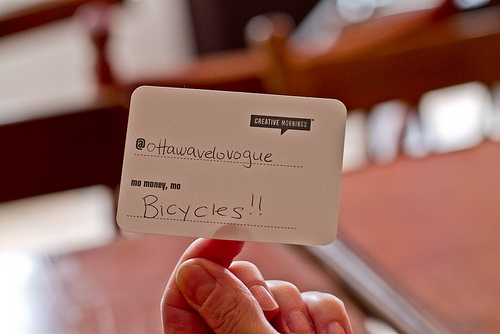 CREATIVE MORNINGS
@ottawavelovogue
mo money, mo
Bicycles!!